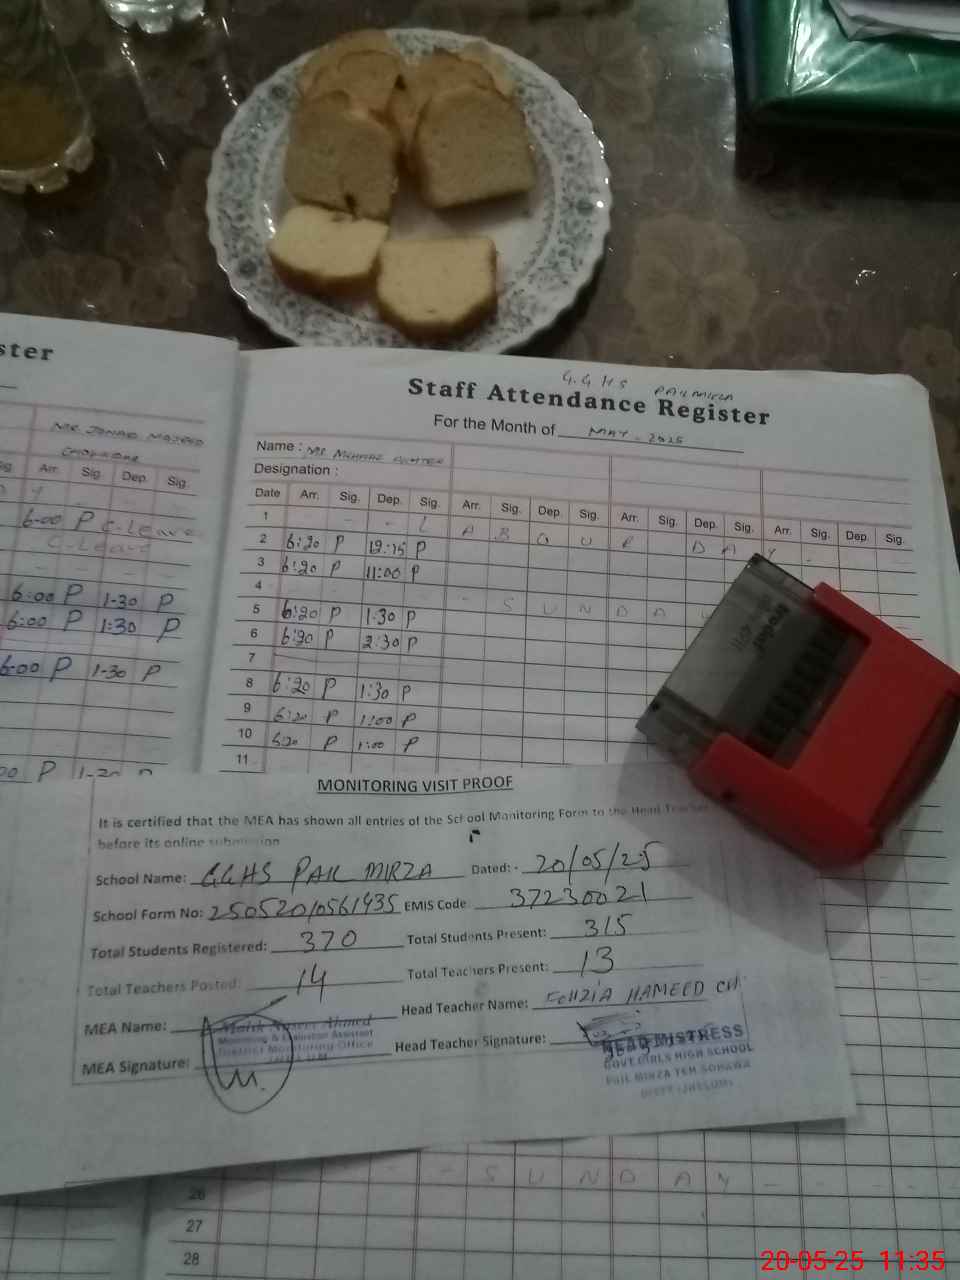 ster
MR. JUNAID MAJEED
CHOWKIDAR
Sig. Arr. Sig. Dep. Sig.
6-00 P C-Leave
C-Leave
6:00 P 1-30 P
6:00 P 1:30 P
6-00 P 1-30 P
00 P
G.G H S PAIL MIRZA
Staff Attendance Register
For the Month of MAY-2025
Name : MR. AKHTER
Designation :
Date Arr. Sig. Dep. Sig. Arr. Sig. Dep. Sig. Arr. Sig. Dep. Sig. Arr. Sig. Dep. Sig.
1 - - - L A B O U R D A Y -
2 6:20 P 12:15 P
3 6:20 P 11:00 P
4 - S U N D A
5 6:20 P 1:30 P
6 6:20 P 2:30 P
7
8 6:20 P 1:30 P
9 6:20 P 1:00 P
10 6:20 P 1:00 P
11
MONITORING VISIT PROOF
It is certified that the MEA has shown all entries of the School Monitoring Form to the Head Teacher
before its online submission
School Name: GGHS PAIL MIRZA Dated:- 20/05/25
School Form No: 250520/0561435 EMIS Code 37230021
Total Students Registered: 370 Total Students Present: 315
Total Teachers Posted: 14 Total Teachers Present: 13
MEA Name: Malik Naseer Ahmed Head Teacher Name: FOUZIA HAMEED CH.
Monitoring & Evaluation Assistant
District Monitoring Office
MEA Signature: Head Teacher Signature:
HEADMISTRESS
GOVT.GIRLS HIGH SCHOOL
PAIL MIRZA TEH SOHAWA
DISTT (JHELUM)
- S U N D A Y - - - -
26
27
28
20-05-25 11:35